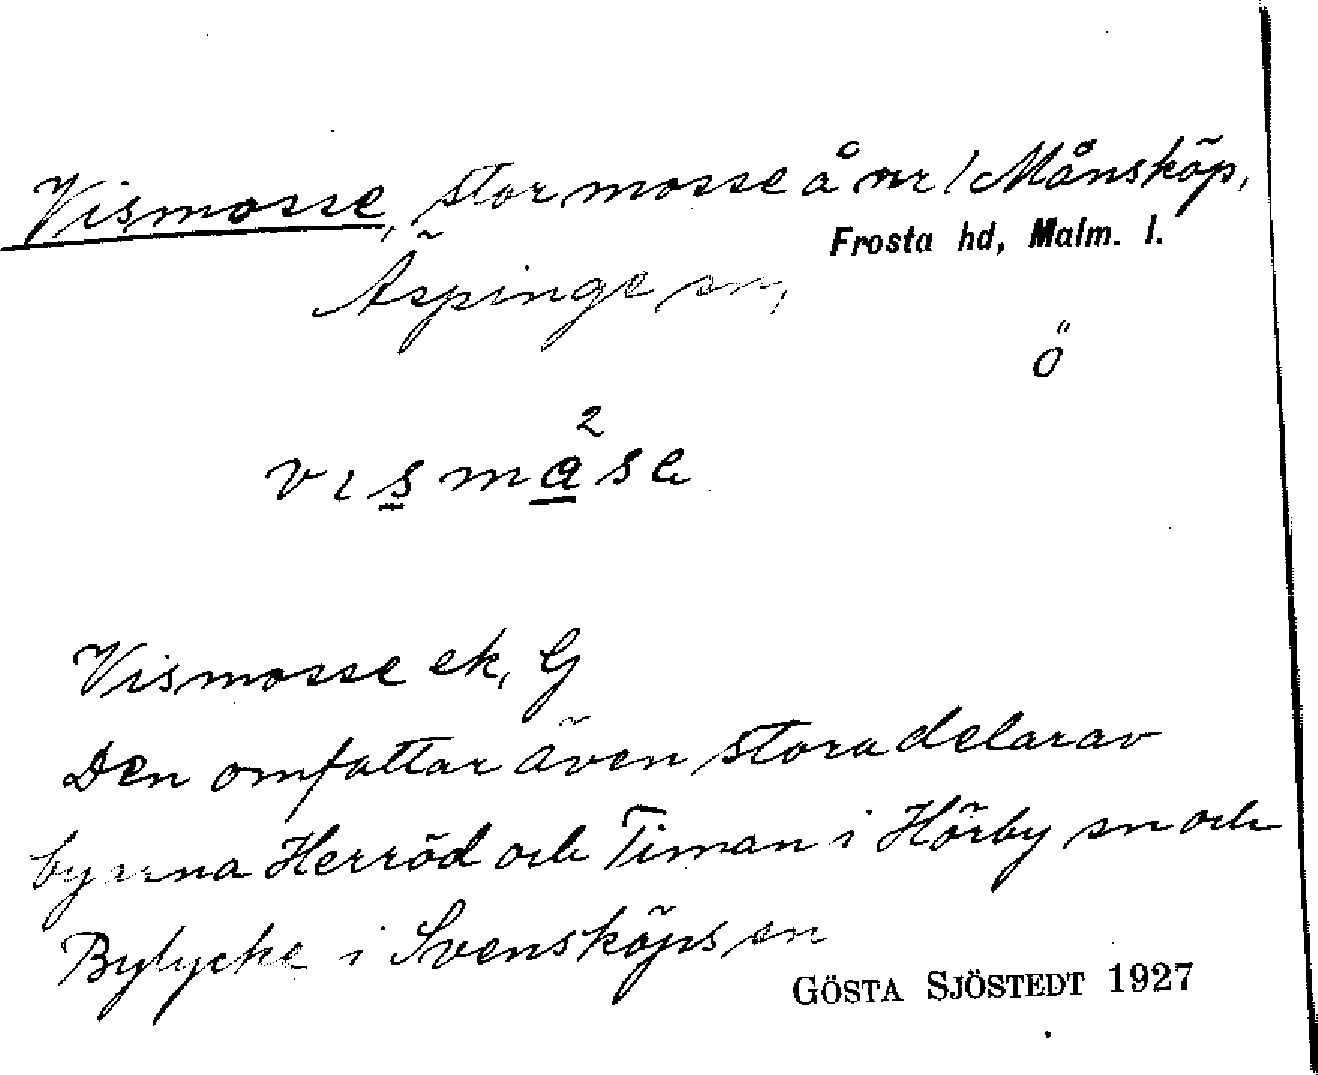 Vismosse, stor mosse å nr 1 Månsköp,
Frosta hd, Malm. l.
Äspinge sn,
ö
2
vismåse
Vismosse ek, G
Den omfattar även stora delar av
byarna Herröd och Timan i Hörby sn och
Bylycke i Svensköps sn
GÖSTA SJÖSTEDT 1927